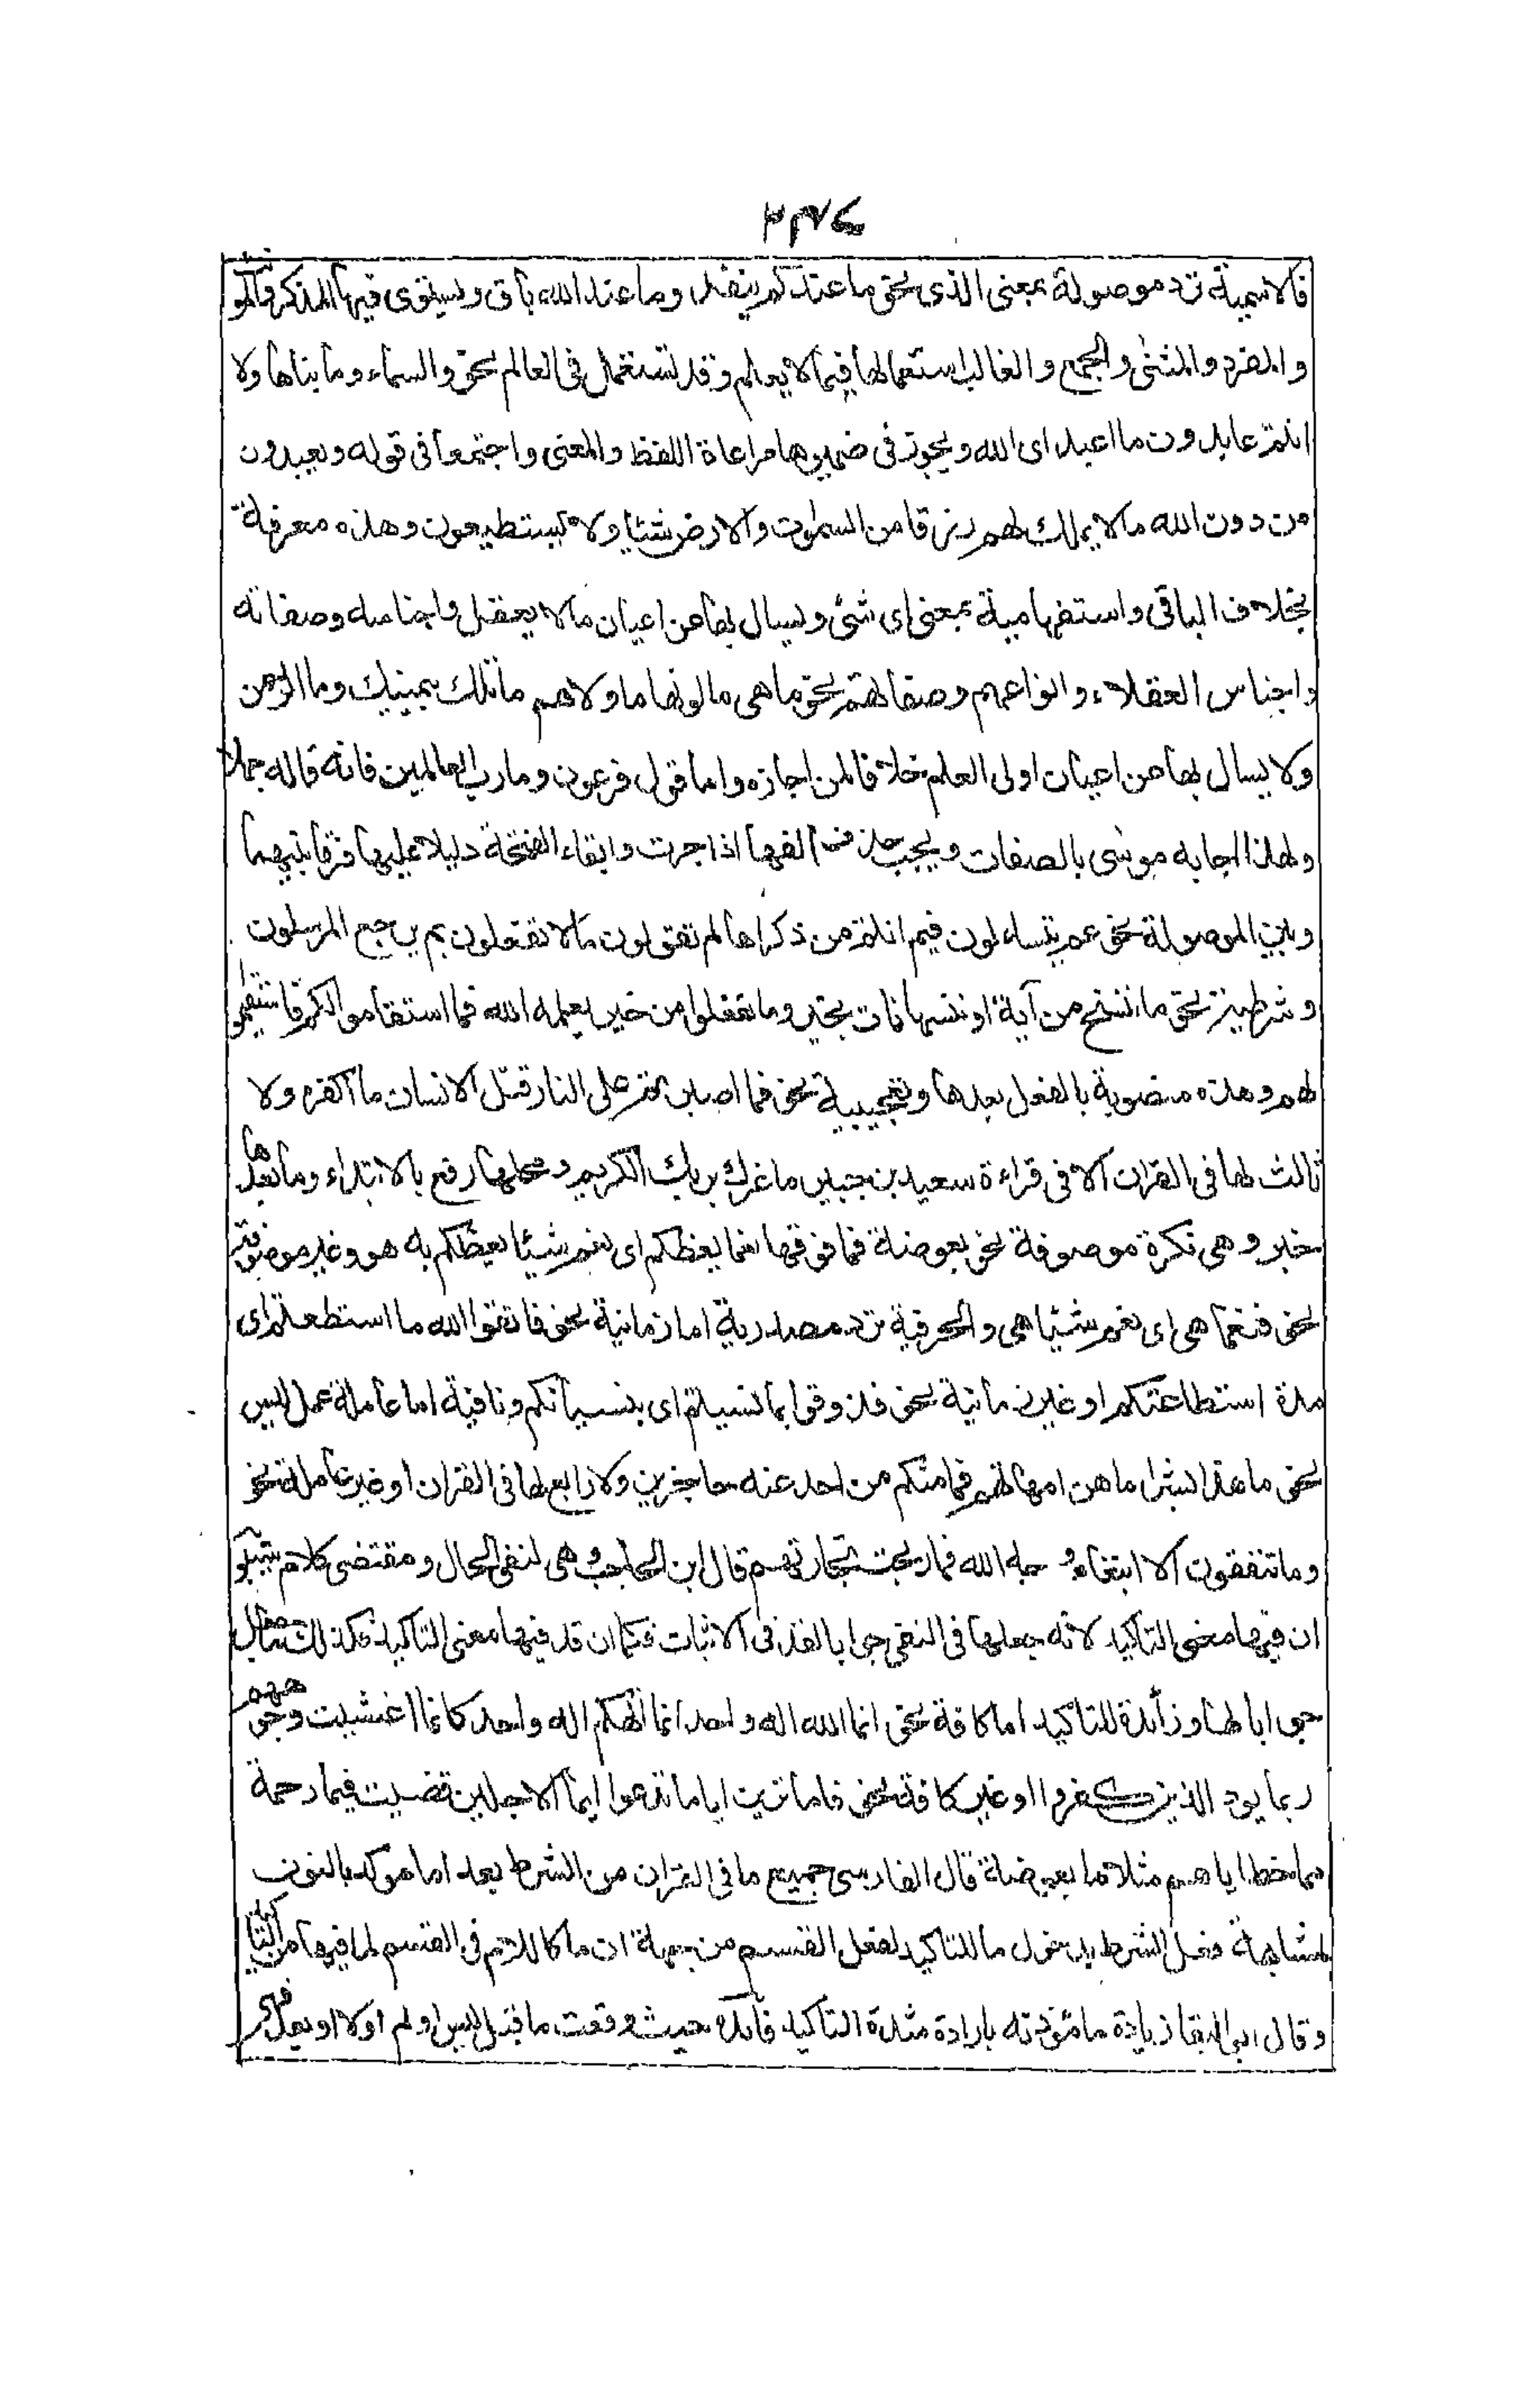 ٣٣٧٤
فالاسمية ترد موصولة بمعنى الذى نحو ما عندكم ينفد وما عند الله باق ويستوى فيها المذكر والمؤنث
والمفرد والمثنى والجمع والغالب استعمالها فيما لا يعلم وقد تستعمل فى العالم نحو والسماء وما بناها ولا
انتم عابدون ما اعبد اى الله ويجوز فى ضميرها مراعاة اللفظ والمعنى واجتمعا فى قوله ويعبدون
من دون الله ما لا يملك لهم رزقا من السموت والارض شيئا ولا يستطيعون وهذه معرفة
بخلاف الباقى واستفهامية بمعنى اى شئ ويسال بها عن اعيان ما لا يعقل واجناسه وصفاته
واجناس العقلاء وانواعهم وصفاتهم نحو ما هى ما لونها ما ولاهم ما تلك بيمينك وما الرحمن
ولا يسال بها عن اعيان اولى العلم خلافا لمن اجازه واما قول فرعون وما رب العالمين فانه قاله جهلا
ولهذا اجابه موسى بالصفات ويجب حذف الفها اذا جرت وابقاء الفتحة دليلا عليها فرقا بينهما
وبين الموصولة نحو عم يتساءلون فيم انت من ذكراها لم تقولون ما لا تفعلون بم يرجع المرسلون
وشرطية نحو ما ننسخ من آية او ننسها نات بخير وما تفعلوا من خير يعلمه الله فما استقاموا لكم فاستقيموا
لهم وهذه منصوبة بالفعل بعدها وتعجيبية نحو فما اصبرهم على النار قتل الانسان ما اكفره ولا
ثالث لها فى القران الا فى قراءة سعيد بن جبير ما غرك بربك الكريم ومحلها رفع بالابتداء وما بعدها
خبر وهى نكرة موصوفة نحو بعوضة فما فوقها نعما يعظكم اى نعم شيئا يعظكم به هو وغير موصوفة
نحو فنعما هى اى نعم شيئا هى والحرفية ترد مصدرية اما زمانية نحو فاتقوا الله ما استطعتم اى
مدة استطاعتكم او غير زمانية نحو فذوقوا بما نسيتم اى بنسيانكم ونافية اما عاملة عمل ليس
نحو ما هذا بشرا ما هن امهاتهم فما منكم من احد عنه حاجزين ولا رابع لها فى القران او غير عاملة نحو
وما تنفقون الا ابتغاء وجه الله فما ربحت تجارتهم قال ابن الحاجب وهى لنفى الحال ومقتضى كلام سيبويه
ان فيها معنى التاكيد لانه جعلها فى النفى جوابا لقد فى الاثبات فكما ان قد فيها معنى التاكيد فكذلك ما جعل
جوابا لها وزائدة للتاكيد اما كافة نحو انما الله اله واحد انما الهكم اله واحد كانما اغشيت وجوههم
ربما يود الذين كفروا او غير كافة نحو فاما ترين اياما تدعوا ايما الاجلين قضيت فبما رحمة
مما خطاياهم مثلا ما بعوضة قال الفارسى جميع ما فى القران من الشرط بعد اما موكد بالنون
لمشابهة فعل الشرط بدخول ما للتاكيد لفعل القسم من جهة ان ما كاللام فى القسم لما فيها من التاكيد
وقال ابو البقا زيادة ما مؤذنة بارادة شدة التاكيد فائدة حيث وقعت ما قبل ليس او لم او لا او بعد